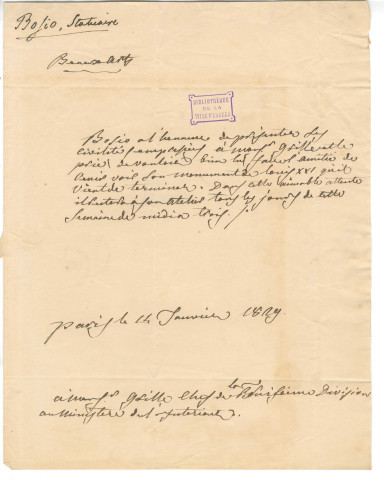 Bosio, Statuaire
Beaux arts
BIBLIOTHEQUE
DE LA
VILLE D'ANGERS
Bosio a l'honneur de présenter Ses
civilités empressées a Monsr Grille et le
prie de vouloir bien lui faire l'amitié de
venir voir Son monument de Louis XVI qu'il
vient de terminer. Dans cette aimable attente
il her la à son atelier tous les jours de cette
Semaine de midi à trois
paris le 14 Janvier 1829
à Monsr Grille Chef de la troisième Division
au Ministère de l'Intérieur.